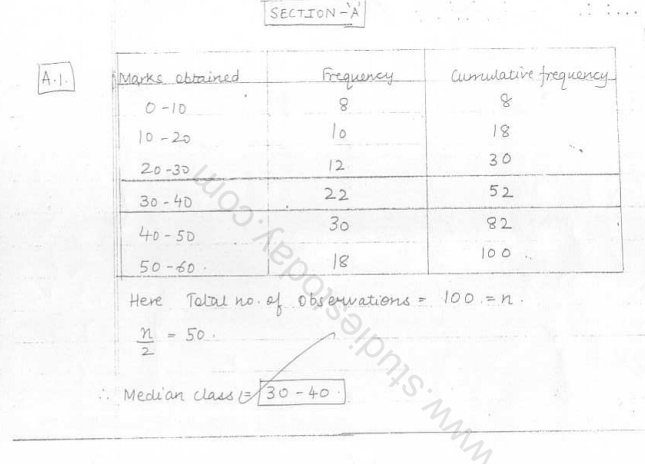 SECTION-'A'
A.1. Marks obtained Frequency Cumulative frequency
0-10 8 8
10-20 10 18
20-30 12 30
30-40 22 52
40-50 30 82
50-60. 18 100
Here Total no. of Observations = 100 = n.
n/2 = 50.
∴ Median class = 30-40.
www.studiestoday.com